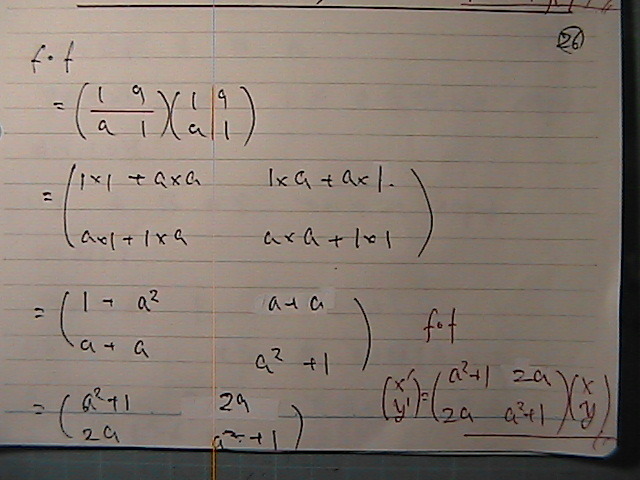 26
f∘f
= (1 a) (1 a)
(a 1) (a 1)
= (1×1 + a×a 1×a + a×1.)
(a×1 + 1×a a×a + 1×1)
= (1 + a² a + a)
(a + a a² + 1)
= (a²+1 2a)
(2a a²+1)
f∘f
(x') = (a²+1 2a) (x)
(y') (2a a²+1) (y)